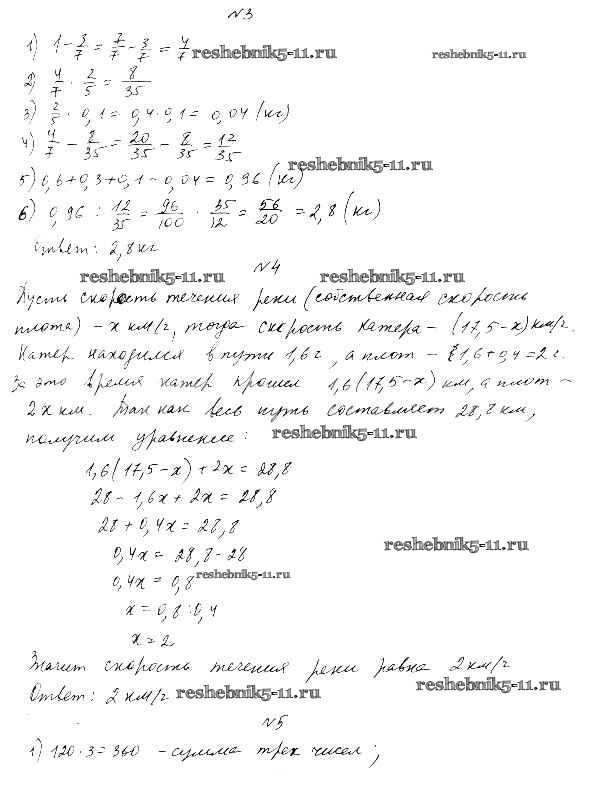 №3
1) 1 - 3/7 = 7/7 - 3/7 = 4/7 reshebnik5-11.ru reshebnik5-11.ru
2) 4/7 · 2/5 = 8/35
3) 2/5 · 0,1 = 0,4 · 0,1 = 0,04 (кг)
4) 4/7 - 8/35 = 20/35 - 8/35 = 12/35
reshebnik5-11.ru
5) 0,6 + 0,3 + 0,1 - 0,04 = 0,96 (кг)
6) 0,96 : 12/35 = 96/100 · 35/12 = 56/20 = 2,8 (кг)
Ответ: 2,8 кг
№4
reshebnik5-11.ru reshebnik5-11.ru
Пусть скорость течения реки (собственная скорость
плота) - x км/г, тогда скорость катера - (17,5-x) км/г.
Катер находился в пути 1,6 г, а плот - 1,6 + 0,4 = 2 г.
За это время катер прошел 1,6(17,5-x) км, а плот -
2x км. Так как весь путь составляет 28,8 км,
получим уравнение: reshebnik5-11.ru
1,6(17,5-x) + 2x = 28,8
28 - 1,6x + 2x = 28,8
28 + 0,4x = 28,8
reshebnik5-11.ru
0,4x = 28,8 - 28
0,4x = 0,8 reshebnik5-11.ru
x = 0,8 : 0,4
x = 2
Значит скорость течения реки равна 2 км/г
Ответ: 2 км/г reshebnik5-11.ru reshebnik5-11.ru
№5
1) 120 · 3 = 360 - сумма трех чисел;